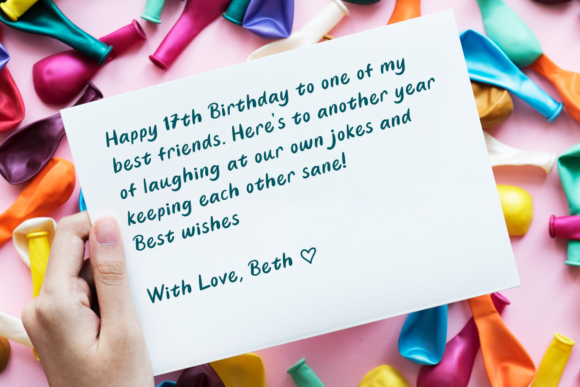 Happy 17th Birthday to one of my
best friends. Here's to another year
of laughing at our own jokes and
keeping each other sane!
Best wishes
With Love, Beth ♡